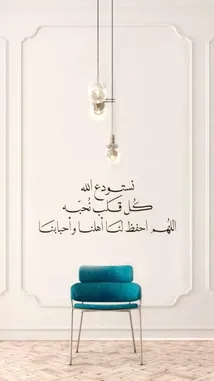 نستودع الله
كل قلب نُحبّه
اللهُم احفظ لنا أهلنا وأحبابنا